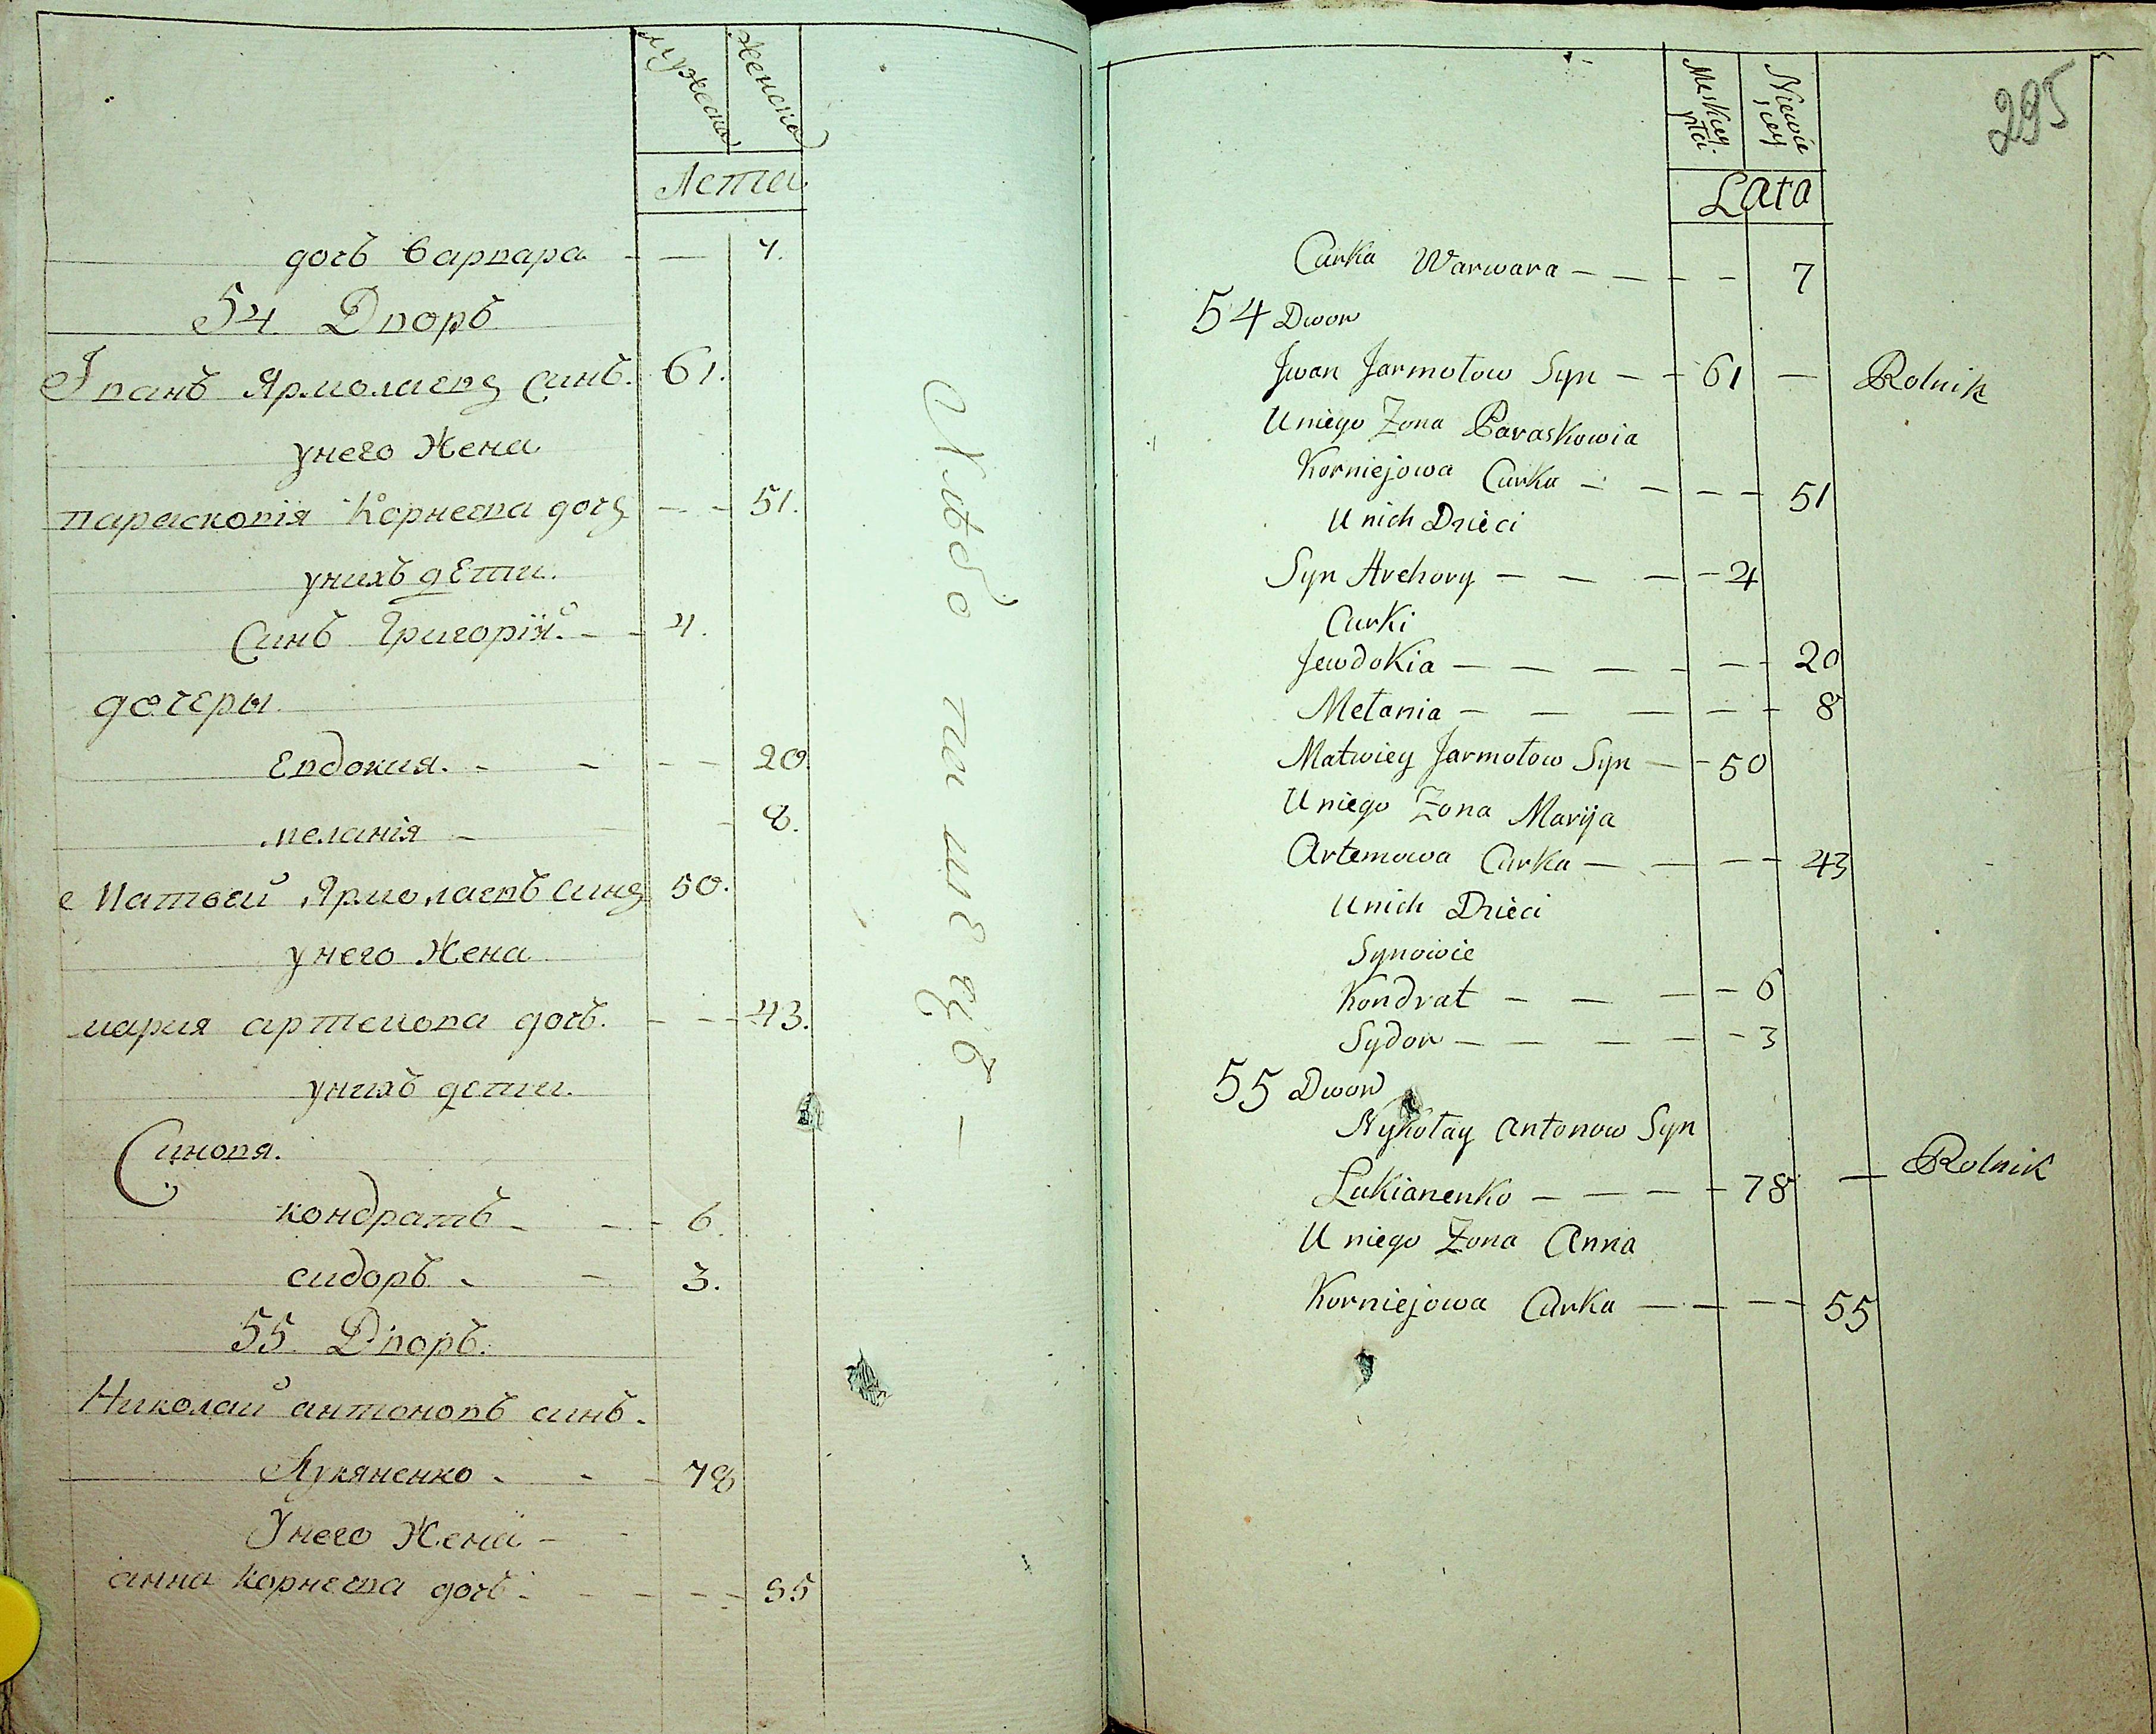 мужеска
женска
Лета
дочь варвара 7.
54 Дворъ
Іванъ Ярмолаевъ Синъ. 61.
унего Жена
парасковія Корнеева дочъ 51.
унихъ дЕти.
Синъ Григорій. 4.
дочеры
Евдокия. 20
мелания 8.
Матвей Ярмолаевъ Синъ 50.
унего Жена
мария артемова дочь. 43.
унихъ дети.
Синовя.
кондратъ 6.
сидоръ 3.
55 Дворъ.
Николай антоновъ синъ.
Лукяненко 78
Унего Жена
анна Корнеева дочь 55
Хлебопашецъ
295
Meskiey. płci
Niewie sciey
Lata
Curka Warwara 7
54 Dwor
Jwan Jarmołow Syn 61 Rolnik
Uniego Zona Paraskowia
Korniejowa Curka 51
Unich Dzieci
Syn Hrehory 4
Curki
Jewdokia 20
Mełania 8
Matwiey Jarmołow Syn 50
Uniego Zona Marija
Artemowa Curka 43
Unich Dzieci
Synowie
Kondrat 6
Sydor 3
55 Dwor
Nykołay Antonow Syn
Lukianenko 78 Rolnik
Uniego Zona Anna
Korniejowa Curka 55